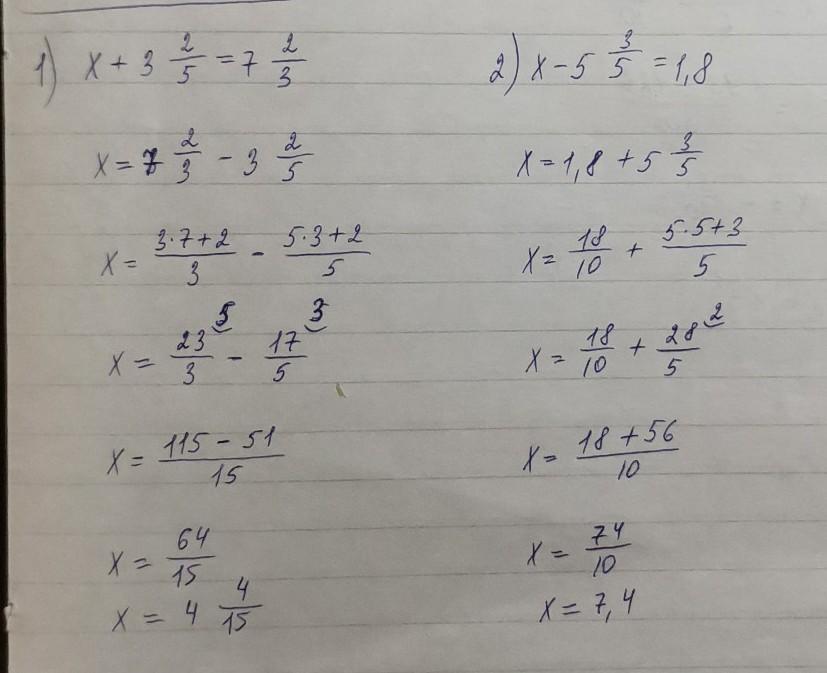 1) x + 3 2/5 = 7 2/3
x = 7 2/3 - 3 2/5
x = (3·7+2)/3 - (5·3+2)/5
x = 23/3 ⁵ - 17/5 ³
x = (115 - 51)/15
x = 64/15
x = 4 4/15
2) x - 5 3/5 = 1,8
x = 1,8 + 5 3/5
x = 18/10 + (5·5+3)/5
x = 18/10 + 28/5 ²
x = (18 + 56)/10
x = 74/10
x = 7,4